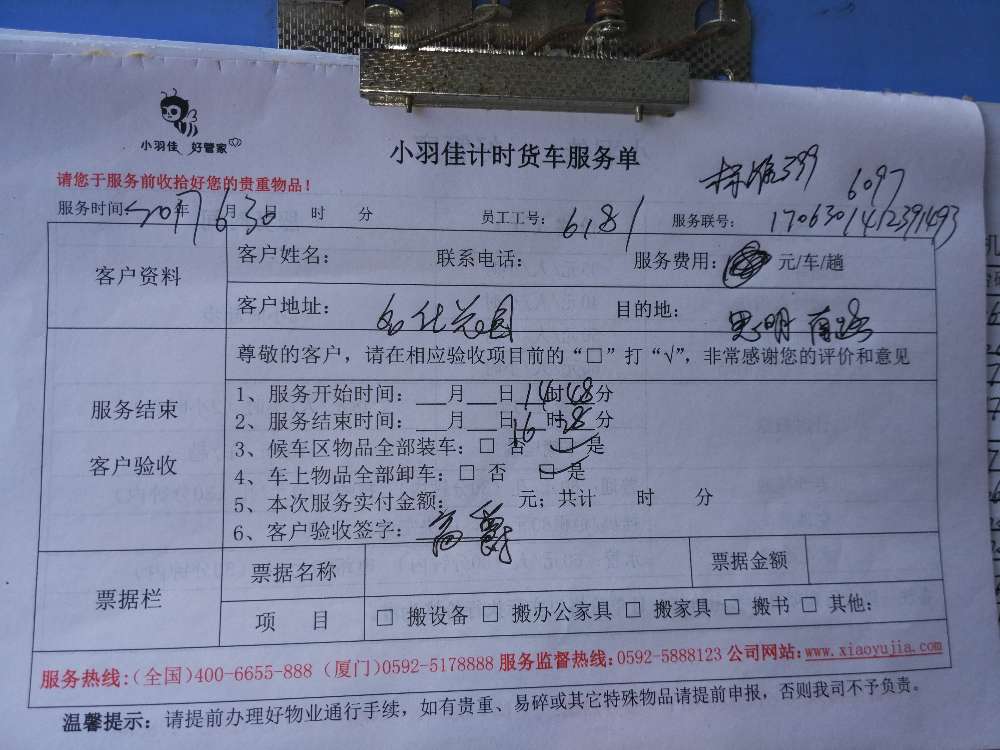 小羽佳 好管家
小羽佳计时货车服务单
标准399
6097
请您于服务前收拾好您的贵重物品！
服务时间 2017年 6月 30日 时 分 员工工号：6181 服务联号：1706301412391493
客户资料 客户姓名： 联系电话： 服务费用： 元/车/趟
客户地址： 花园 目的地： 思明南路
尊敬的客户，请在相应验收项目前的“□”打“√”，非常感谢您的评价和意见
服务结束
客户验收
1、服务开始时间：___月___日14时48分
2、服务结束时间：___月___日16时28分
3、候车区物品全部装车：□ 否 □ 是
4、车上物品全部卸车：□ 否 □ 是
5、本次服务实付金额： 元；共计 时 分
6、客户验收签字：高
票据栏 票据名称 票据金额
项 目 □ 搬设备 □ 搬办公家具 □ 搬家具 □ 搬书 □ 其他：
服务热线：(全国)400-6655-888 (厦门)0592-5178888 服务监督热线：0592-5888123 公司网站：www.xiaoyujia.com
温馨提示：请提前办理好物业通行手续，如有贵重、易碎或其它特殊物品请提前申报，否则我司不予负责。